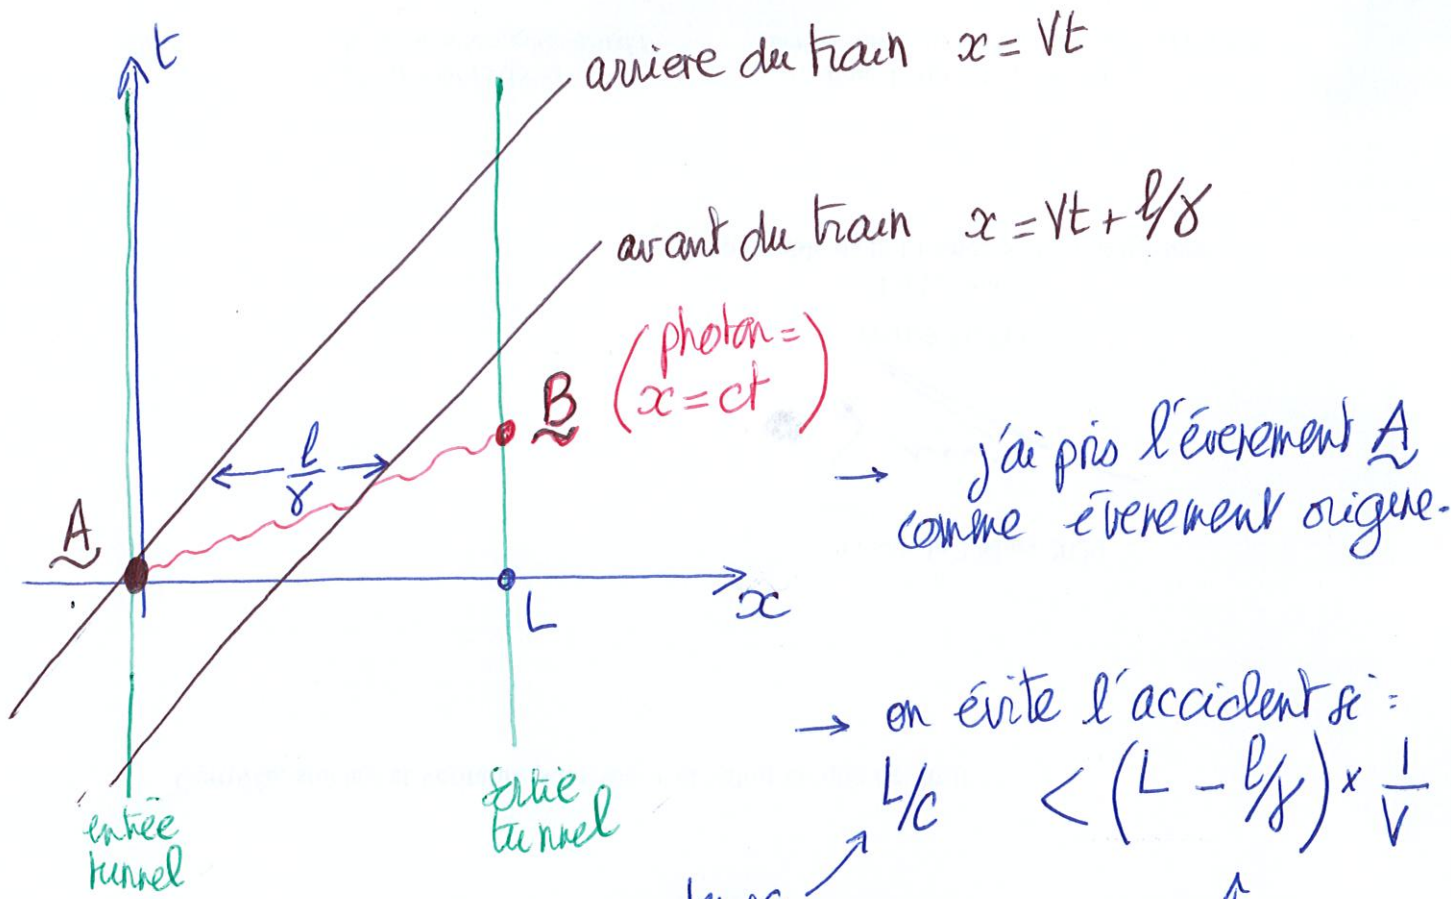 t
arriere du train x = Vt
avant du train x = Vt + l/γ
(photon =
x = ct)
B
l/γ
A
→ j'ai pris l'évenement A
comme évenement origine.
L
x
→ on évite l'accident si :
L/c < (L - l/γ) × 1/V
entrée
tunnel
sortie
tunnel